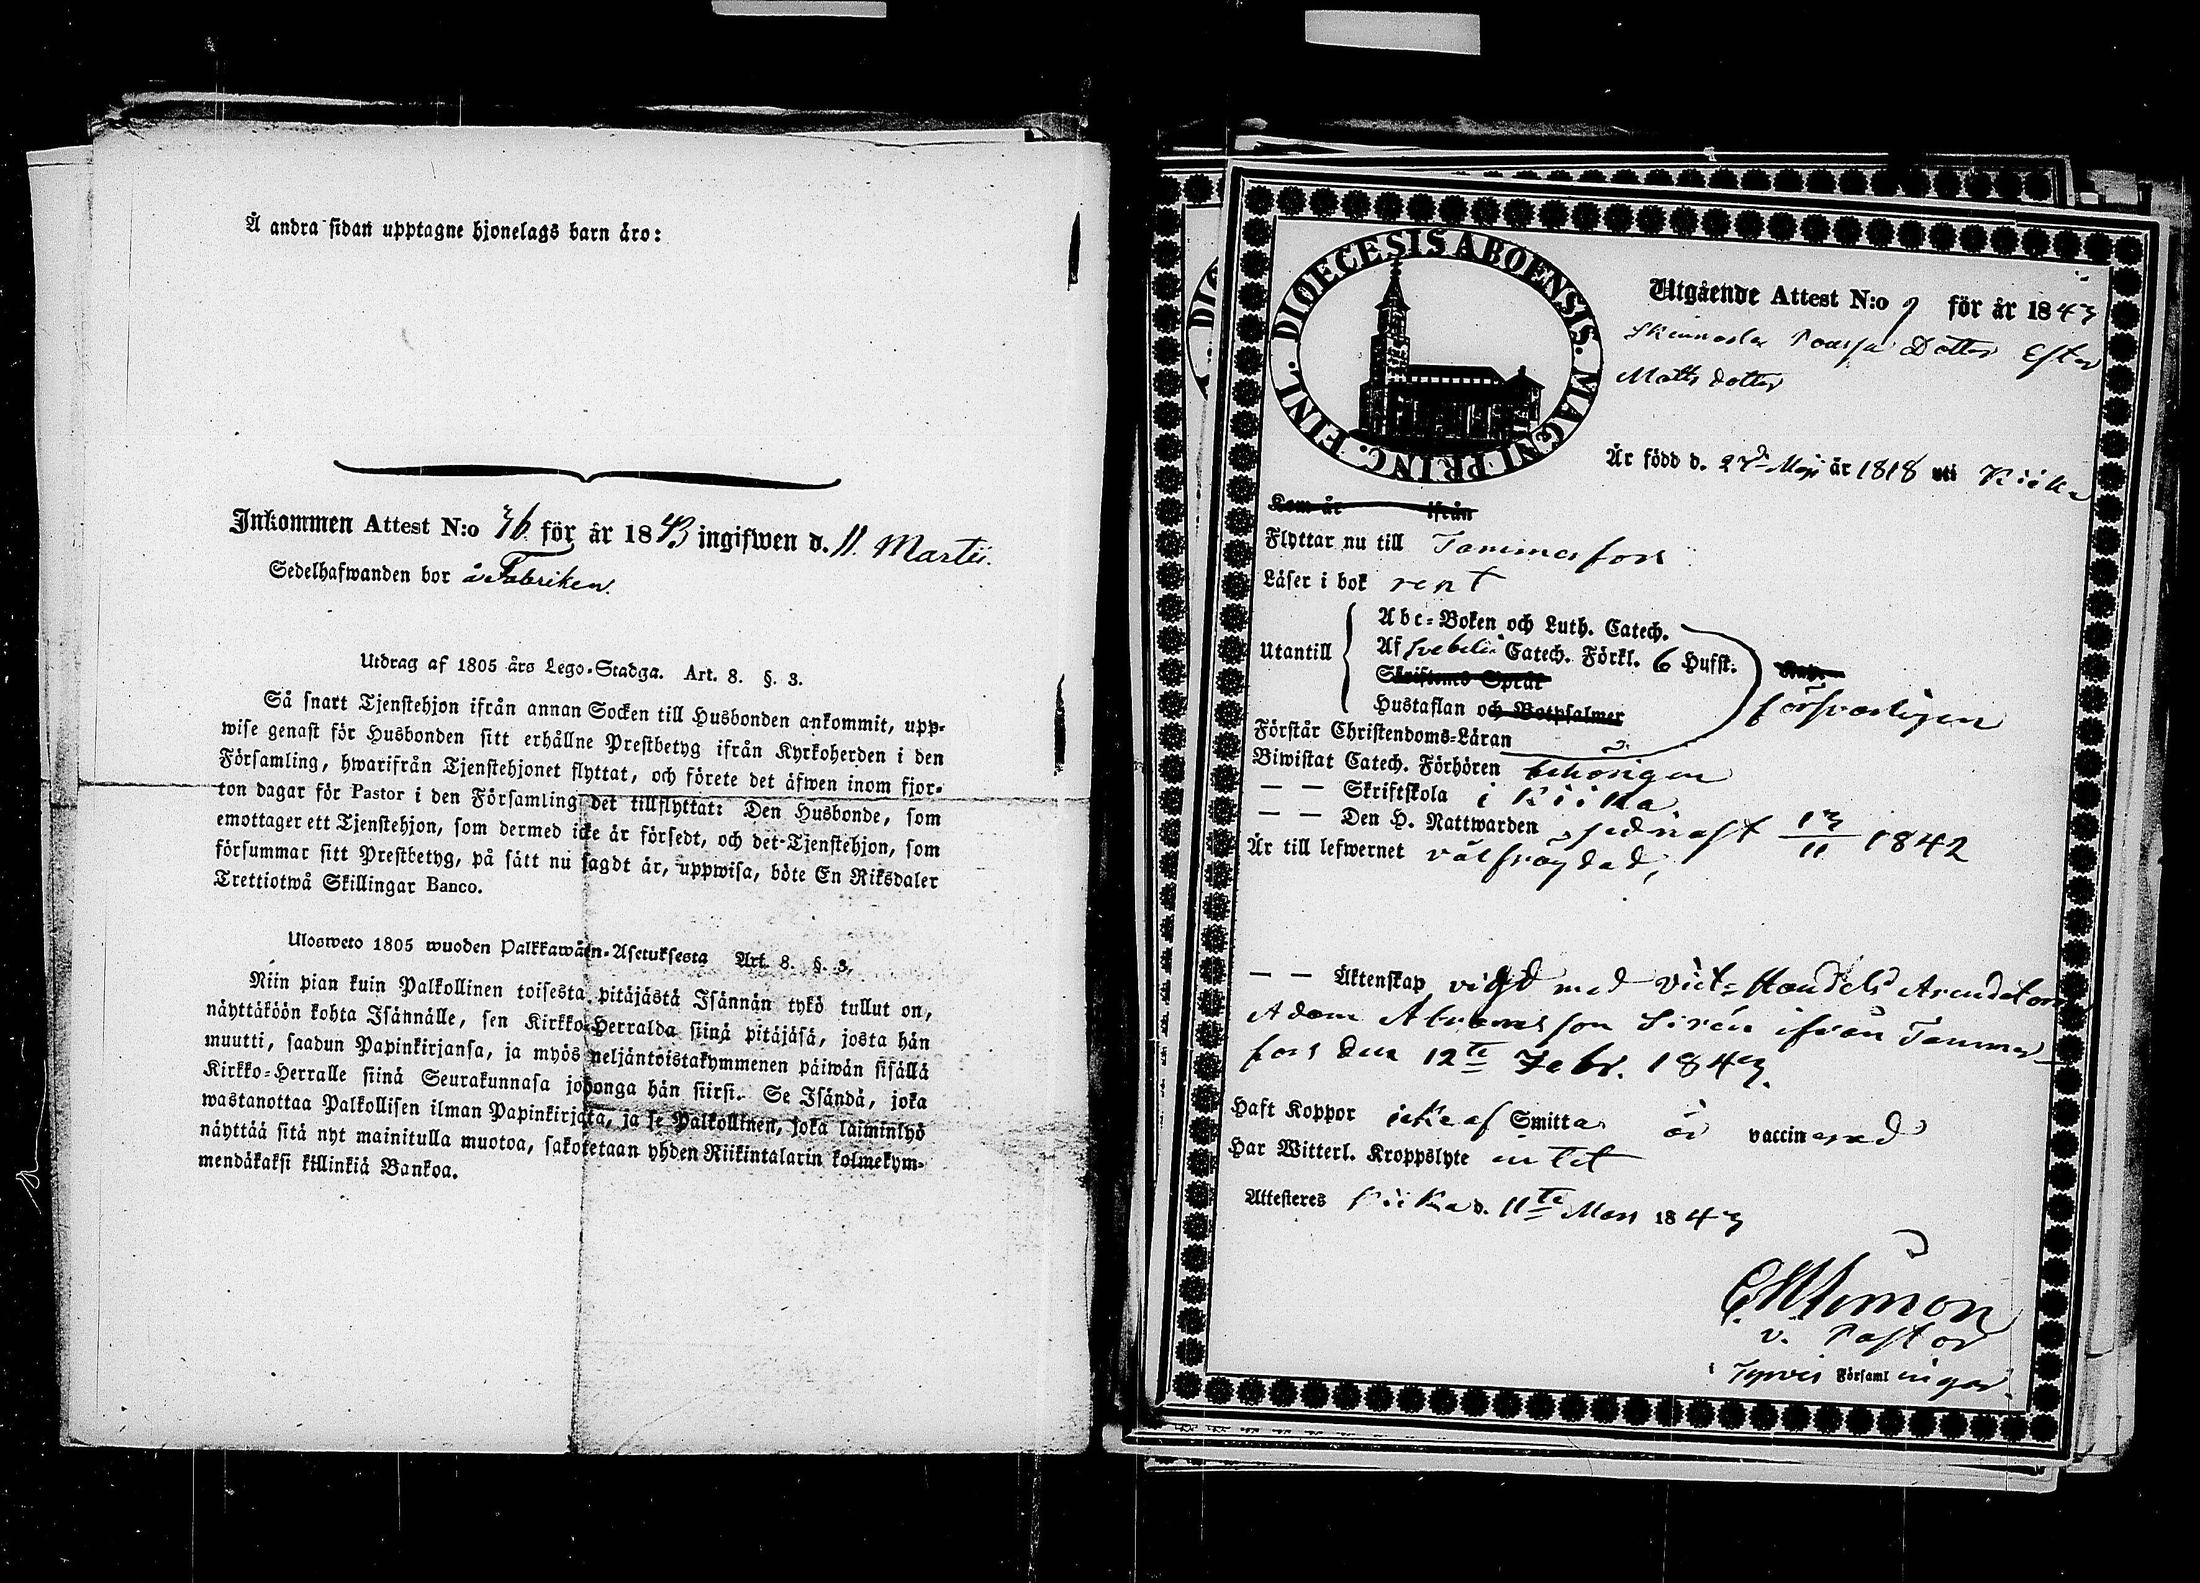 Å andra sidan upptagne hjonelags barn äro:
Inkommen Attest N:o 36 för år 1843 ingifwen d. 11 Martii.
Sedelhafwanden bor å Fabriken.
Utdrag af 1805 års Lego-Stadga. Art. 8. §. 3.
Så snart Tjenstehjon ifrån annan Socken till Husbonden ankommit, upp-
wise genast för Husbonden sitt erhållne Prestbetyg ifrån Kyrkoherden i den
Församling, hwarifrån Tjenstehjonet flyttat, och förete det äfwen inom fjor-
ton dagar för Pastor i den Församling det tillflyttat: Den Husbonde, som
emottager ett Tjenstehjon, som dermed icke är försedt, och det Tjenstehjon, som
försummar sitt Prestbetyg, på sätt nu sagdt är, uppwisa, böte En Riksdaler
Trettiotwå Skillingar Banco.
Ulosweto 1805 wuoden Palkkawäen-Asetuksesta Art. 8. §. 3.
Niin pian kuin Palkollinen toisesta pitäjästä Isännän tykö tullut on,
näyttäköön kohta Isännälle, sen Kirkko-Herralda siinä pitäjäsä, josta hän
muutti, saadun Papinkirjansa, ja myös neljäntoistakymmenen päiwän sisällä
Kirkko-Herralle siinä Seurakunnasa johonga hän siirsi. Se Isändä, joka
wastanottaa Palkollisen ilman Papinkirjata, ja se Palkollinen, joka laiminlyö
näyttää sitä nyt mainitulla muotoa, sakotetaan yhden Riikintalarin kolmekym-
mendäkaksi killinkiä Bankoa.
DIOECESIS ABOENSIS. MAGNI PRINC. FINL.
Utgående Attest N:o 9 för år 1843
Dotter Ester
Matts dotter
Är född d. 27d Maji år 1818 uti Kiika
Kom år ifrån
Flyttar nu till Tammerfors
Läser i bok rent
Utantill
Abc-Boken och Luth. Catech.
Af Svebelii Catech. Förkl. 6 Hufst:
Skriftenes Språk
Hustaflan och Botpsalmer
försvarligen
Förstår Christendoms-Läran
Biwistat Catech. Förhören behörigen
— — Skriftskola i Kiika
— — Den H. Nattwarden sednast 13/11 1842
Är till lefwernet välfrägdad,
— — Äktenskap vigd med Vict-Handels Arendatorn
Adam Abramsson Sirén ifrån Tammer-
fors den 12te Febr. 1843.
Haft Koppor icke af Smitta är vaccinerad
Har Witterl. Kroppslyte intet
Attesteres Kiika d. 11te Mars 1843
v. Pastor
i Tyrvis Församlingar.